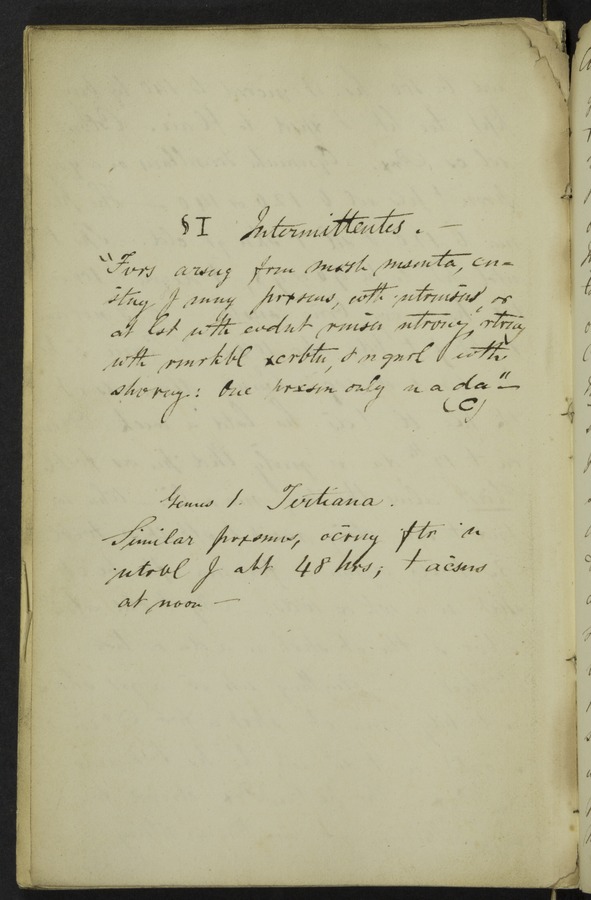 § I Intermittentes. —
"Fvrs arsng from mrsh msmta, cn=
stng of mny prxsms, with ntrmsns, or
at lst with evdnt rmssn ntrvng, rtrng
with rmrkbl xcrbtn, & n gnrl with
shvrng: One prxsm only n a da" —
(C)
Genus 1. Tertiana.
Similar prxsms, occrng ftr n
ntrvl of abt 48 hrs; + accsns
at noon —